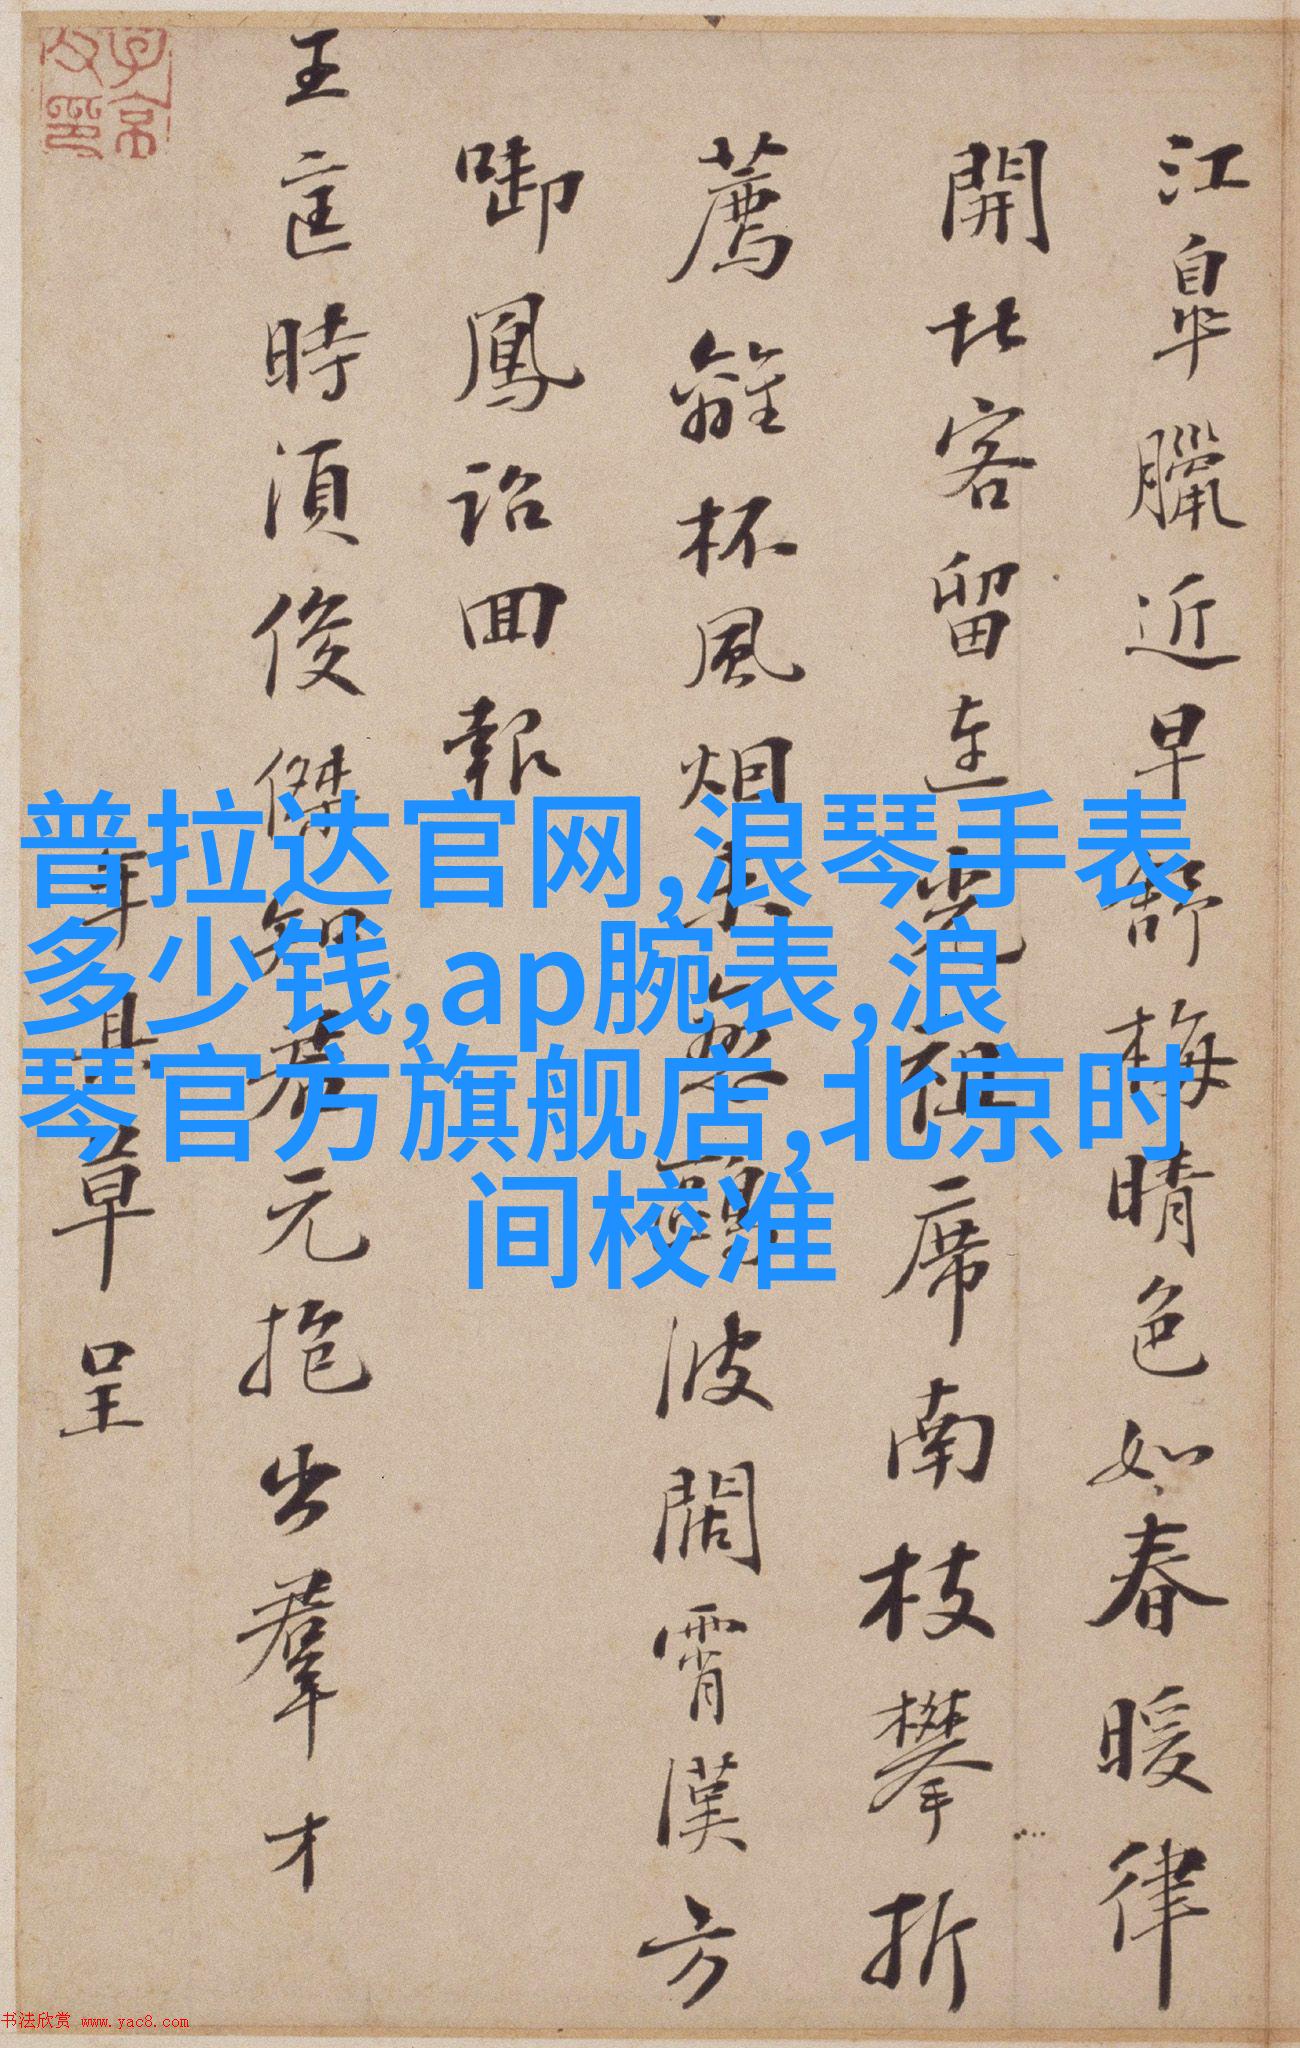 江皐臘近早舒梅晴色如春暖律
開北客留連祖席南枝攀折
薦離杯風烟波闊霄漢方
啣鳳詔囬報
王匡時須俊傑知君元抱出羣才
年草呈
子京父印
普拉达官网,浪琴手表
多少钱,ap腕表,浪
琴官方旗舰店,北京时
间校准
书法欣赏 www.yac8.com